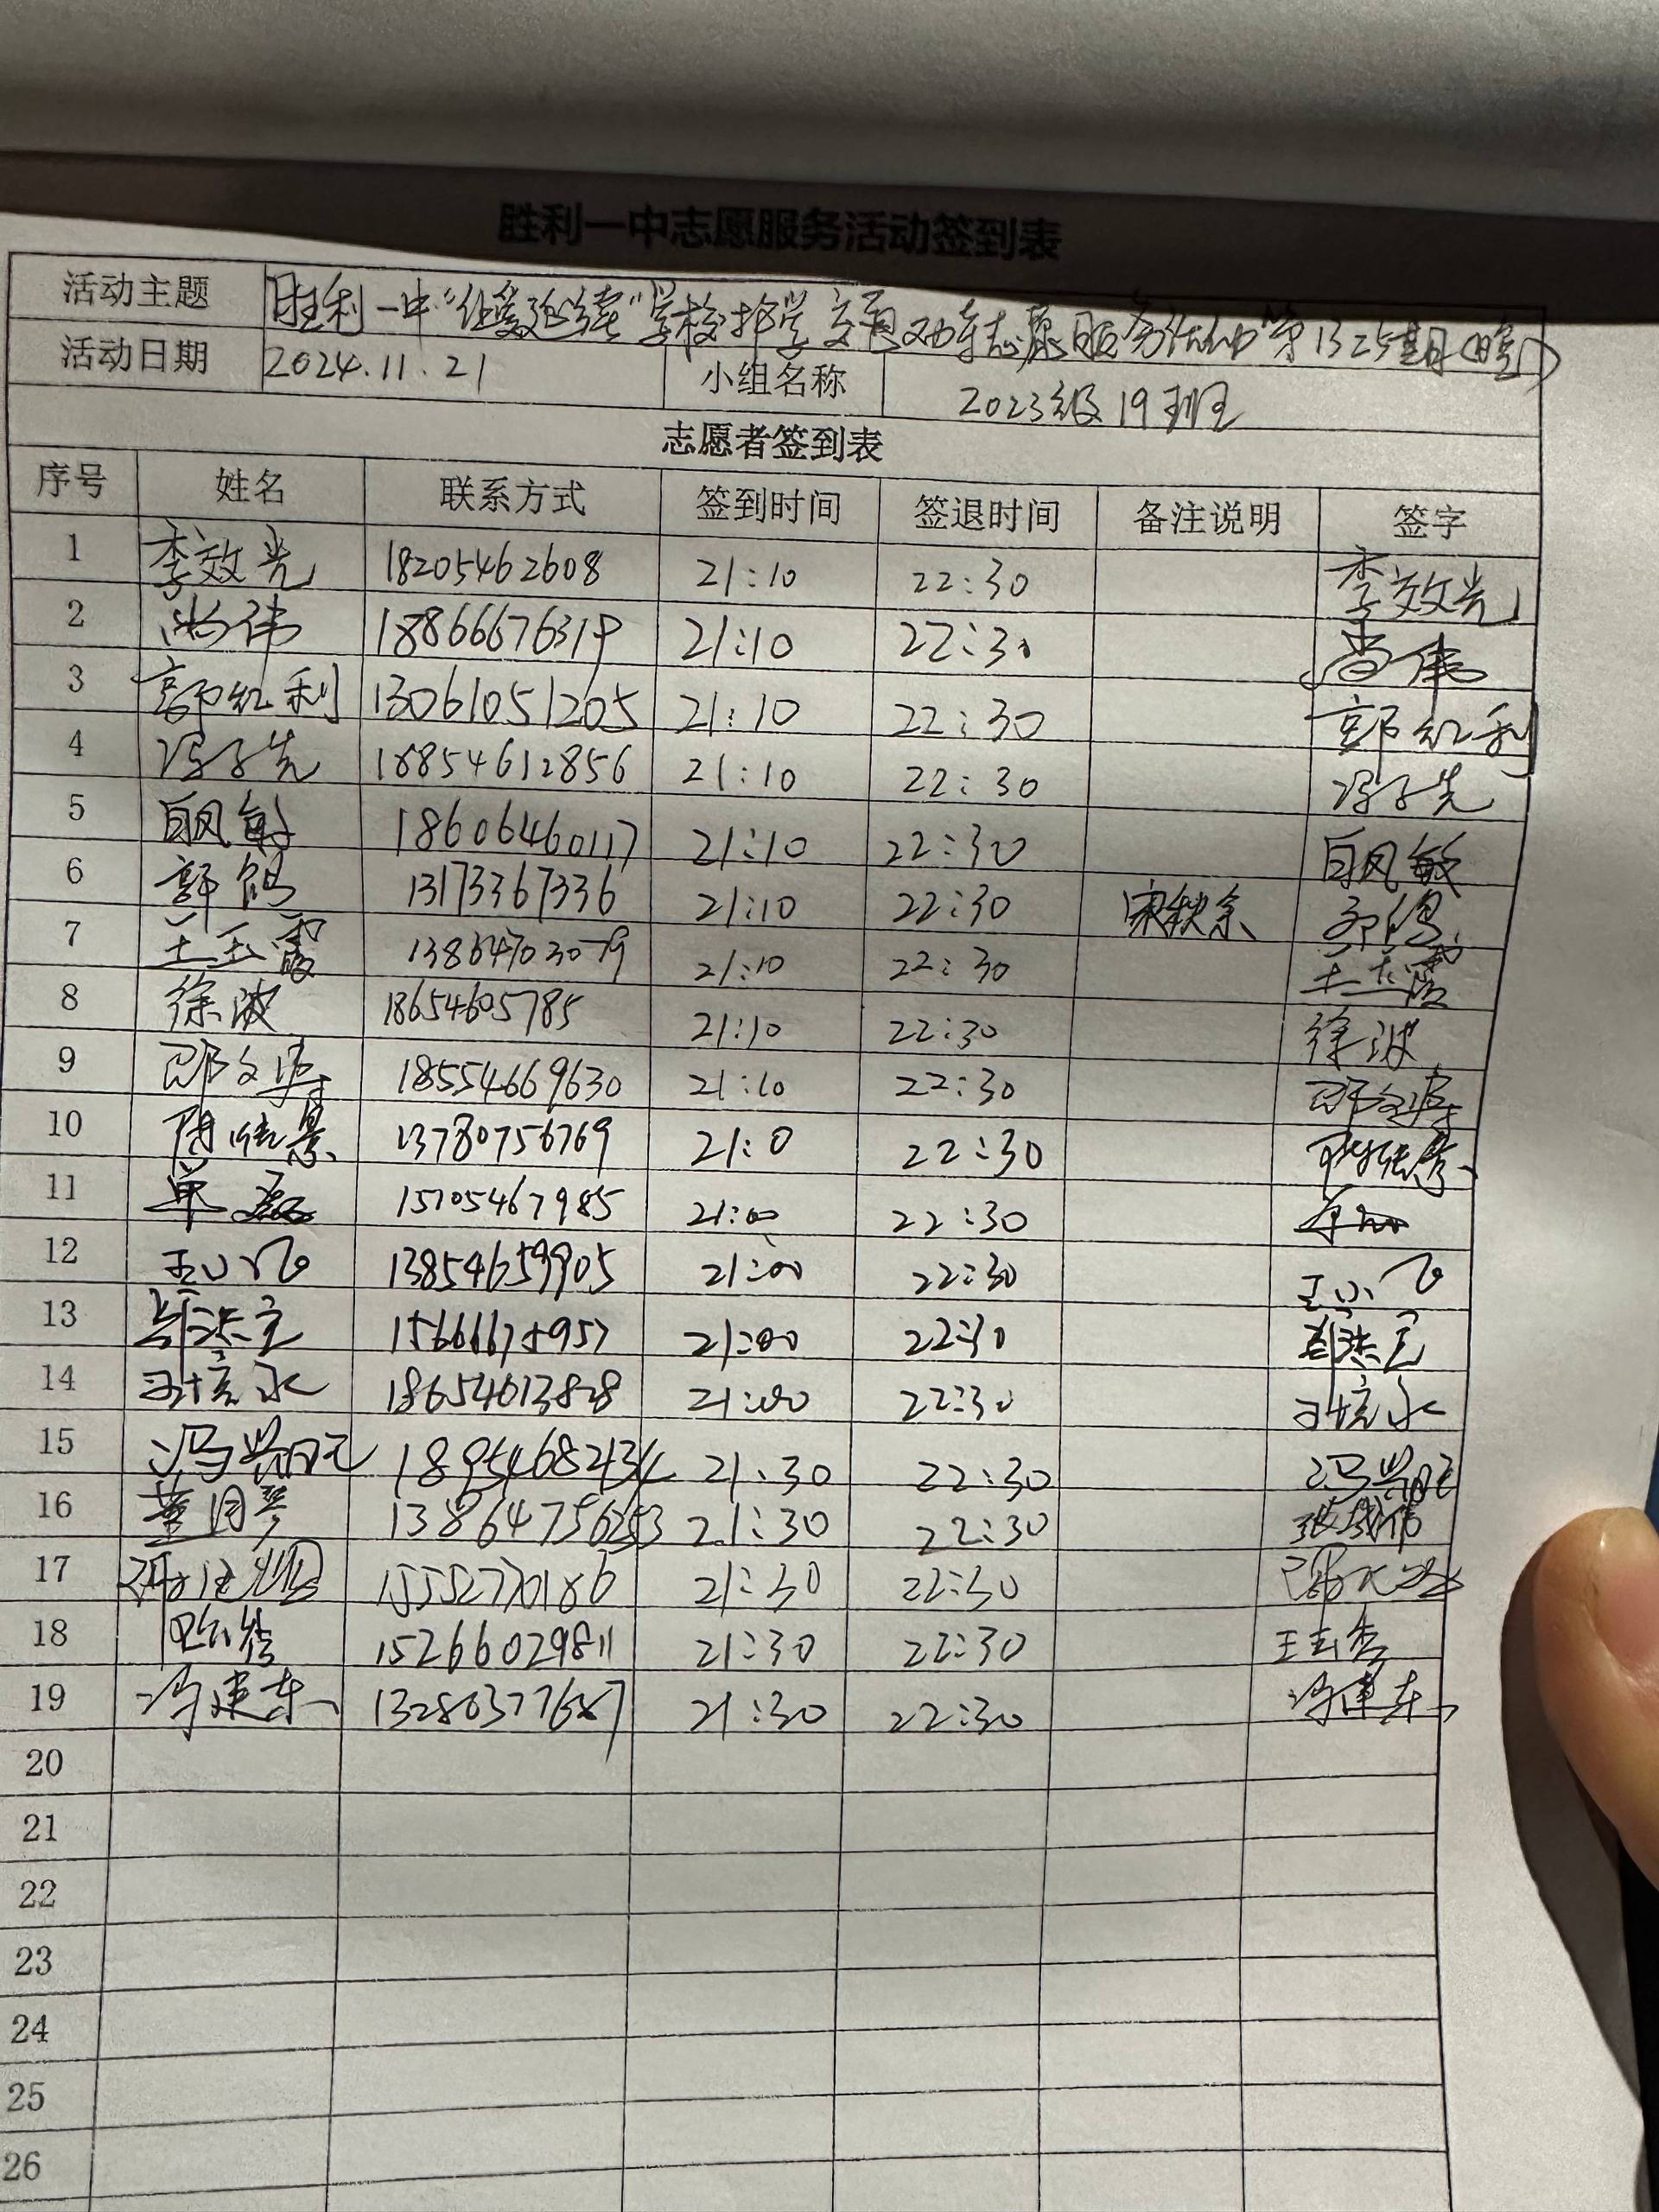 胜利一中志愿服务活动签到表
活动主题 胜利一中"让爱延续"学校护学交通劝导志愿服务活动"第1325期(晚)
活动日期 2024.11.21 小组名称 2023级19班
志愿者签到表
序号 姓名 联系方式 签到时间 签退时间 备注说明 签字
1 李效光 18205462608 21:10 22:30 李效光
2 尚伟 18866676319 21:10 22:30 尚伟
3 郭红利 13061051205 21:10 22:30 郭红利
4 冯子先 18854612856 21:10 22:30 冯子先
5 白凤敏 18606460117 21:10 22:30 白凤敏
6 郭鸽 13173367336 21:10 22:30 宋秋余
7 王玉霞 13864703079 21:10 22:30 王玉霞
8 徐波 18654605785 21:10 22:30 徐波
9 18554669630 21:10 22:30
10 13780756769 21:0 22:30
11 单 15705467985 21:00 22:30
12 王小飞 13854659905 21:00 22:30 王小飞
13 21:00 22:30
14 18654613828 21:00 22:30
15 冯兴旺 18954682434 21:30 22:30 冯兴旺
16 董月琴 21:30 22:30 张成伟
17 15552770186 21:30 22:30
18 15266029811 21:30 22:30
19 冯建东 21:30 22:30 冯建东
20
21
22
23
24
25
26